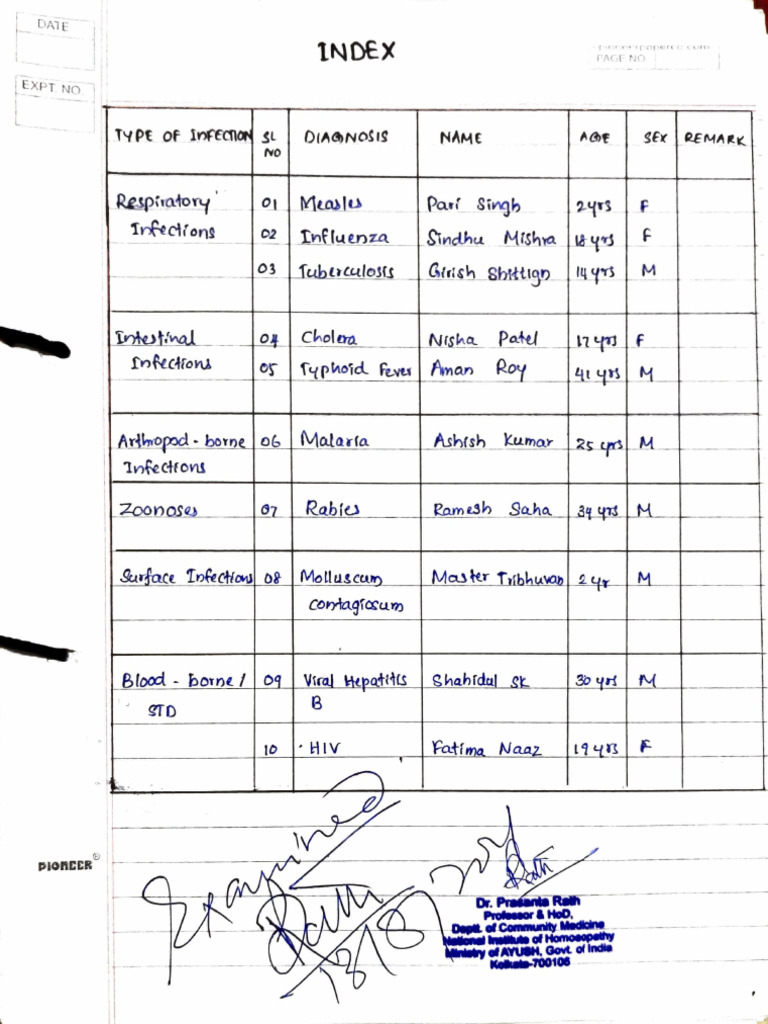 DATE
INDEX
PAGE NO
EXPT. NO.
TYPE OF INFECTION SL NO DIAGNOSIS NAME AGE SEX REMARK
Respiratory 01 Measles Pari Singh 2yrs F
Infections 02 Influenza Sindhu Mishra 18 yrs F
03 Tuberculosis Girish 14 yrs M
Intestinal 04 Cholera Nisha Patel 17 yrs F
Infections 05 Typhoid Fever Aman Roy 41 yrs M
Arthropod - borne 06 Malaria Ashish Kumar 25 yrs M
Infections
Zoonoses 07 Rabies Ramesh Saha 34 yrs M
Surface Infections 08 Molluscum Master Tribhuvan 2 yr M
contagiosum
Blood - borne / 09 Viral Hepatitis Shahidul SK 30 yrs M
STD B
10 HIV Fatima Naaz 19 yrs F
PIONEER
Examined
Rath
Rath
Dr. Prasanta Rath
Professor & HoD,
Deptt. of Community Medicine
National Institute of Homoeopathy
Ministry of AYUSH, Govt. of India
Kolkata-700106